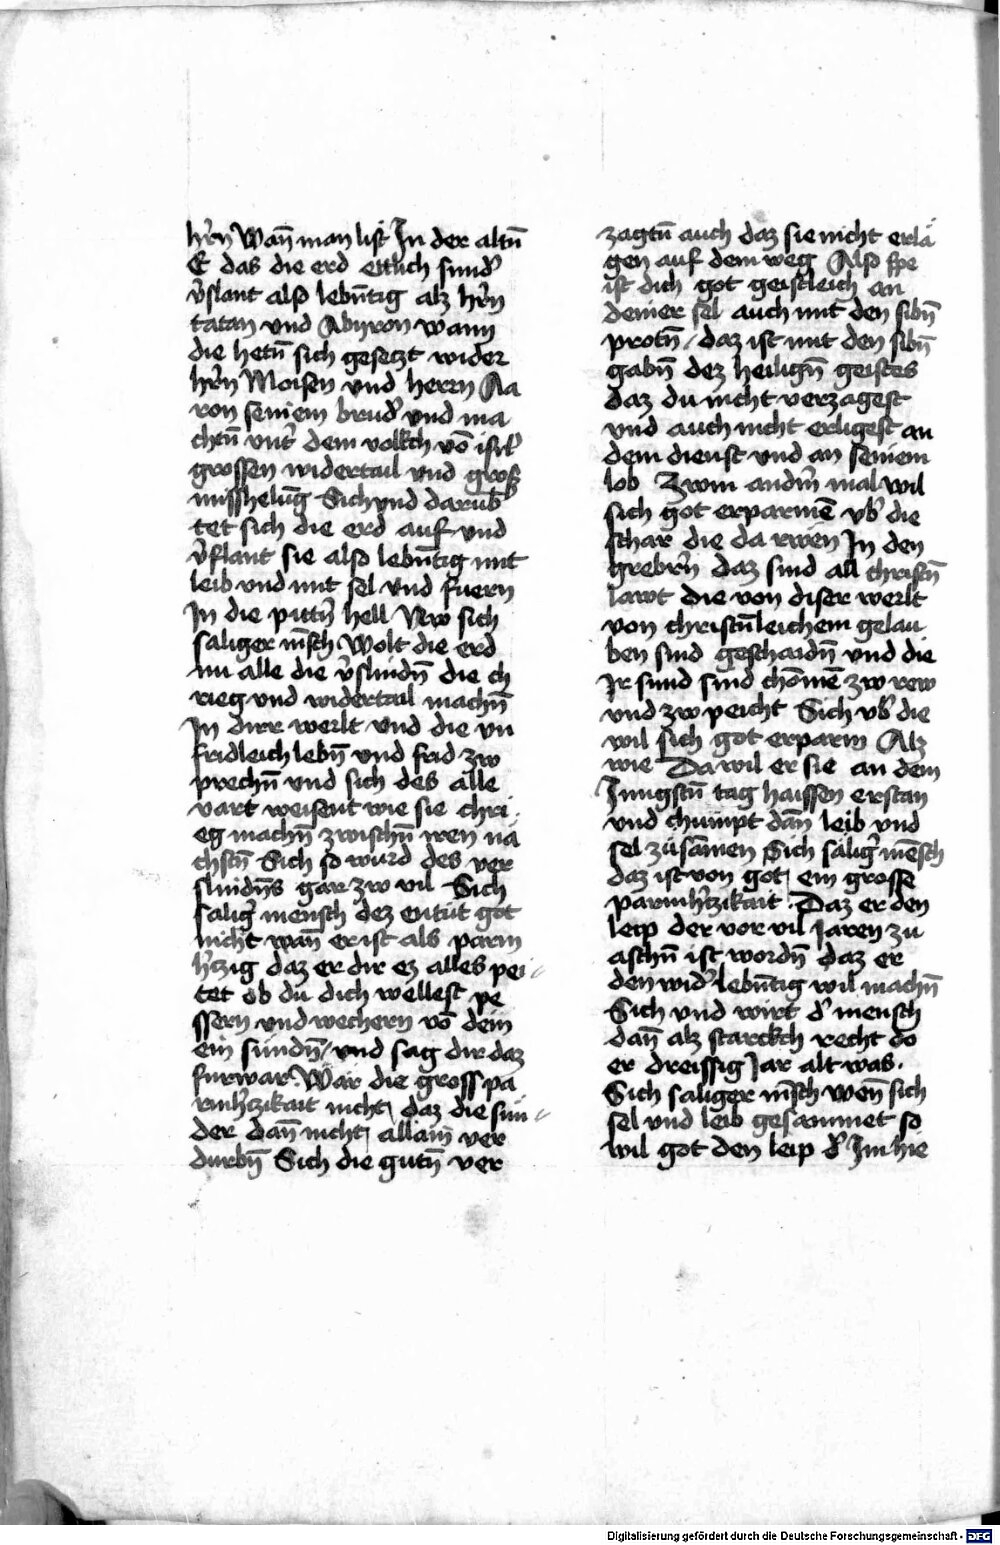 hr̄n Wan̄ man list In der altn̄
E das die erd etlich sund̾
v̾slant also lebn̄tig alz hr̄n
tatan vnd Abyron wann
die hetn̄ sich gesetzt wider
hr̄n Moisen vnd herrn Aa
ron seinem brud̾ vnd ma
chtn̄ vnt̾ dem volkch vō isrl̾
grossen widertail vnd gross
misshelūg Sich vnd darūb
tet sich die erd auf vnd
v̾slant sie also lebn̄tig mit
leib vnd mit sel vnd fuern
In die pittn̾ hell Nw sich
saliger mēsch Wolt die erd
nu alle die v̾slindn̄ die ch
rieg vnd widertail machn̄
In dirr werlt vnd die vn
fridleich lebn̄ vnd frid zw
prechn̄ vnd sich des alle
vart weisent wie sie chri
eg machn̄ zwischn̄ iren nā
chstn̄ Sich so wurd des ver
slindn̄s gar zw vil Sich
salig̾ mensch dez entut got
nicht wan̄ er ist als parm
h̾tzig daz er dir ez alles pei
tet ob du dich wellest pe
ssern vnd wechern vō dein
ein sundn̄ vnd sag dir daz
furwar Wār die gross pa
rmh̾tzikait nicht daz die sun
der dan̄ nicht allain ver
durbn̄ Sich die gutn̄ ver
zagtn̄ auch daz sie nicht erlā
gen auf dem weg Also spe
ist dich got geistleich an
deiner sel auch mit den sibn̄
protn̄ daz ist mit den sibn̄
gabn̄ dez heilign̄ geistes
daz du nicht verzagest
vnd auch nicht erligest an
dem dienst vnd an seinem
lob Zwm andn̾ mal wil
sich got erparmē vb̾ die
schar die da rwēn In den
grebrn̾ daz sind all christn̄
lawt die von diser werlt
von christn̄leichem gelau
ben sind geschaidn̄ vnd die
Ir sund sind chōmē zw rew
vnd zw peicht Sich vb̾ die
wil sich got erparm Alz
wie Da wil er sie an dem
Jungstn̄ tag haissen erstan
vnd chumpt dan̄ leib vnd
sel zusāmen Sich sālig̾ mēsch
daz ist von got ein grosse
parmh̾tzikait Daz er den
leip der vor vil Jaren zu
aschn̄ ist wordn̄ daz er
den wid̾ lebn̄tig wil machn̄
Sich vnd wirt d̾ mensch
dan̄ alz starckch recht do
er dreissig Jar alt was
Sich saliger mēsch wen̄ sich
sel vnd leib gesammet so
wil got den leip d̾ Im hie
Digitalisierung gefördert durch die Deutsche Forschungsgemeinschaft - DFG